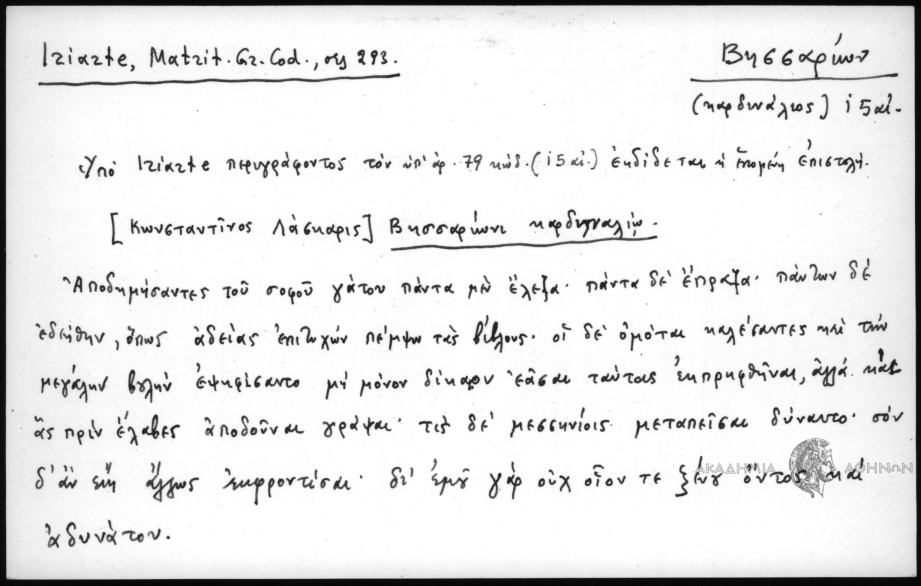 Iriarte, Matrit. Gr. Cod., σελ 293.
Βησσαρίων
(καρδινάλιος) ι5 αἰ.
Ὑπὸ Iriarte περιγράφοντος τὸν ὑπ' ἀρ. 79 κώδ. (ι5 αἰ.) ἐκδίδεται ἡ ἑπομένη ἐπιστολή.
[Κωνσταντῖνος Λάσκαρις] Βησσαρίωνι καρδιναλίῳ.
Ἀποδημήσαντος τοῦ σοφοῦ γάτου πάντα μὲν ἔλεξα· πάντα δὲ ἔπραξα· πάντων δὲ
ἐδεήθην, ὅπως ἀδείας ἐπιτυχὼν πέμψω τὰς βίβλους. οἱ δὲ ὀμόται καλέσαντες καὶ τὴν
μεγάλην βουλὴν ἐψηφίσαντο μὴ μόνον δίκαιον ἐᾶσαι ταύτας ἐκπριηθῆναι, ἀλλὰ καὶ
ἃς πρὶν ἔλαβες ἀποδοῦναι γράψαι· τίς δὲ μεσσηνίοις μεταπεῖσαι δύναιτο· σὸν
δ' ἂν εἴη ἄλλως ἐκφροντίσαι· δι' ἐμοῦ γὰρ οὐχ οἷον τε ξένου ὄντος καὶ
ἀδυνάτου.
ΑΚΑΔΗΜΙΑ ΑΘΗΝΩΝ